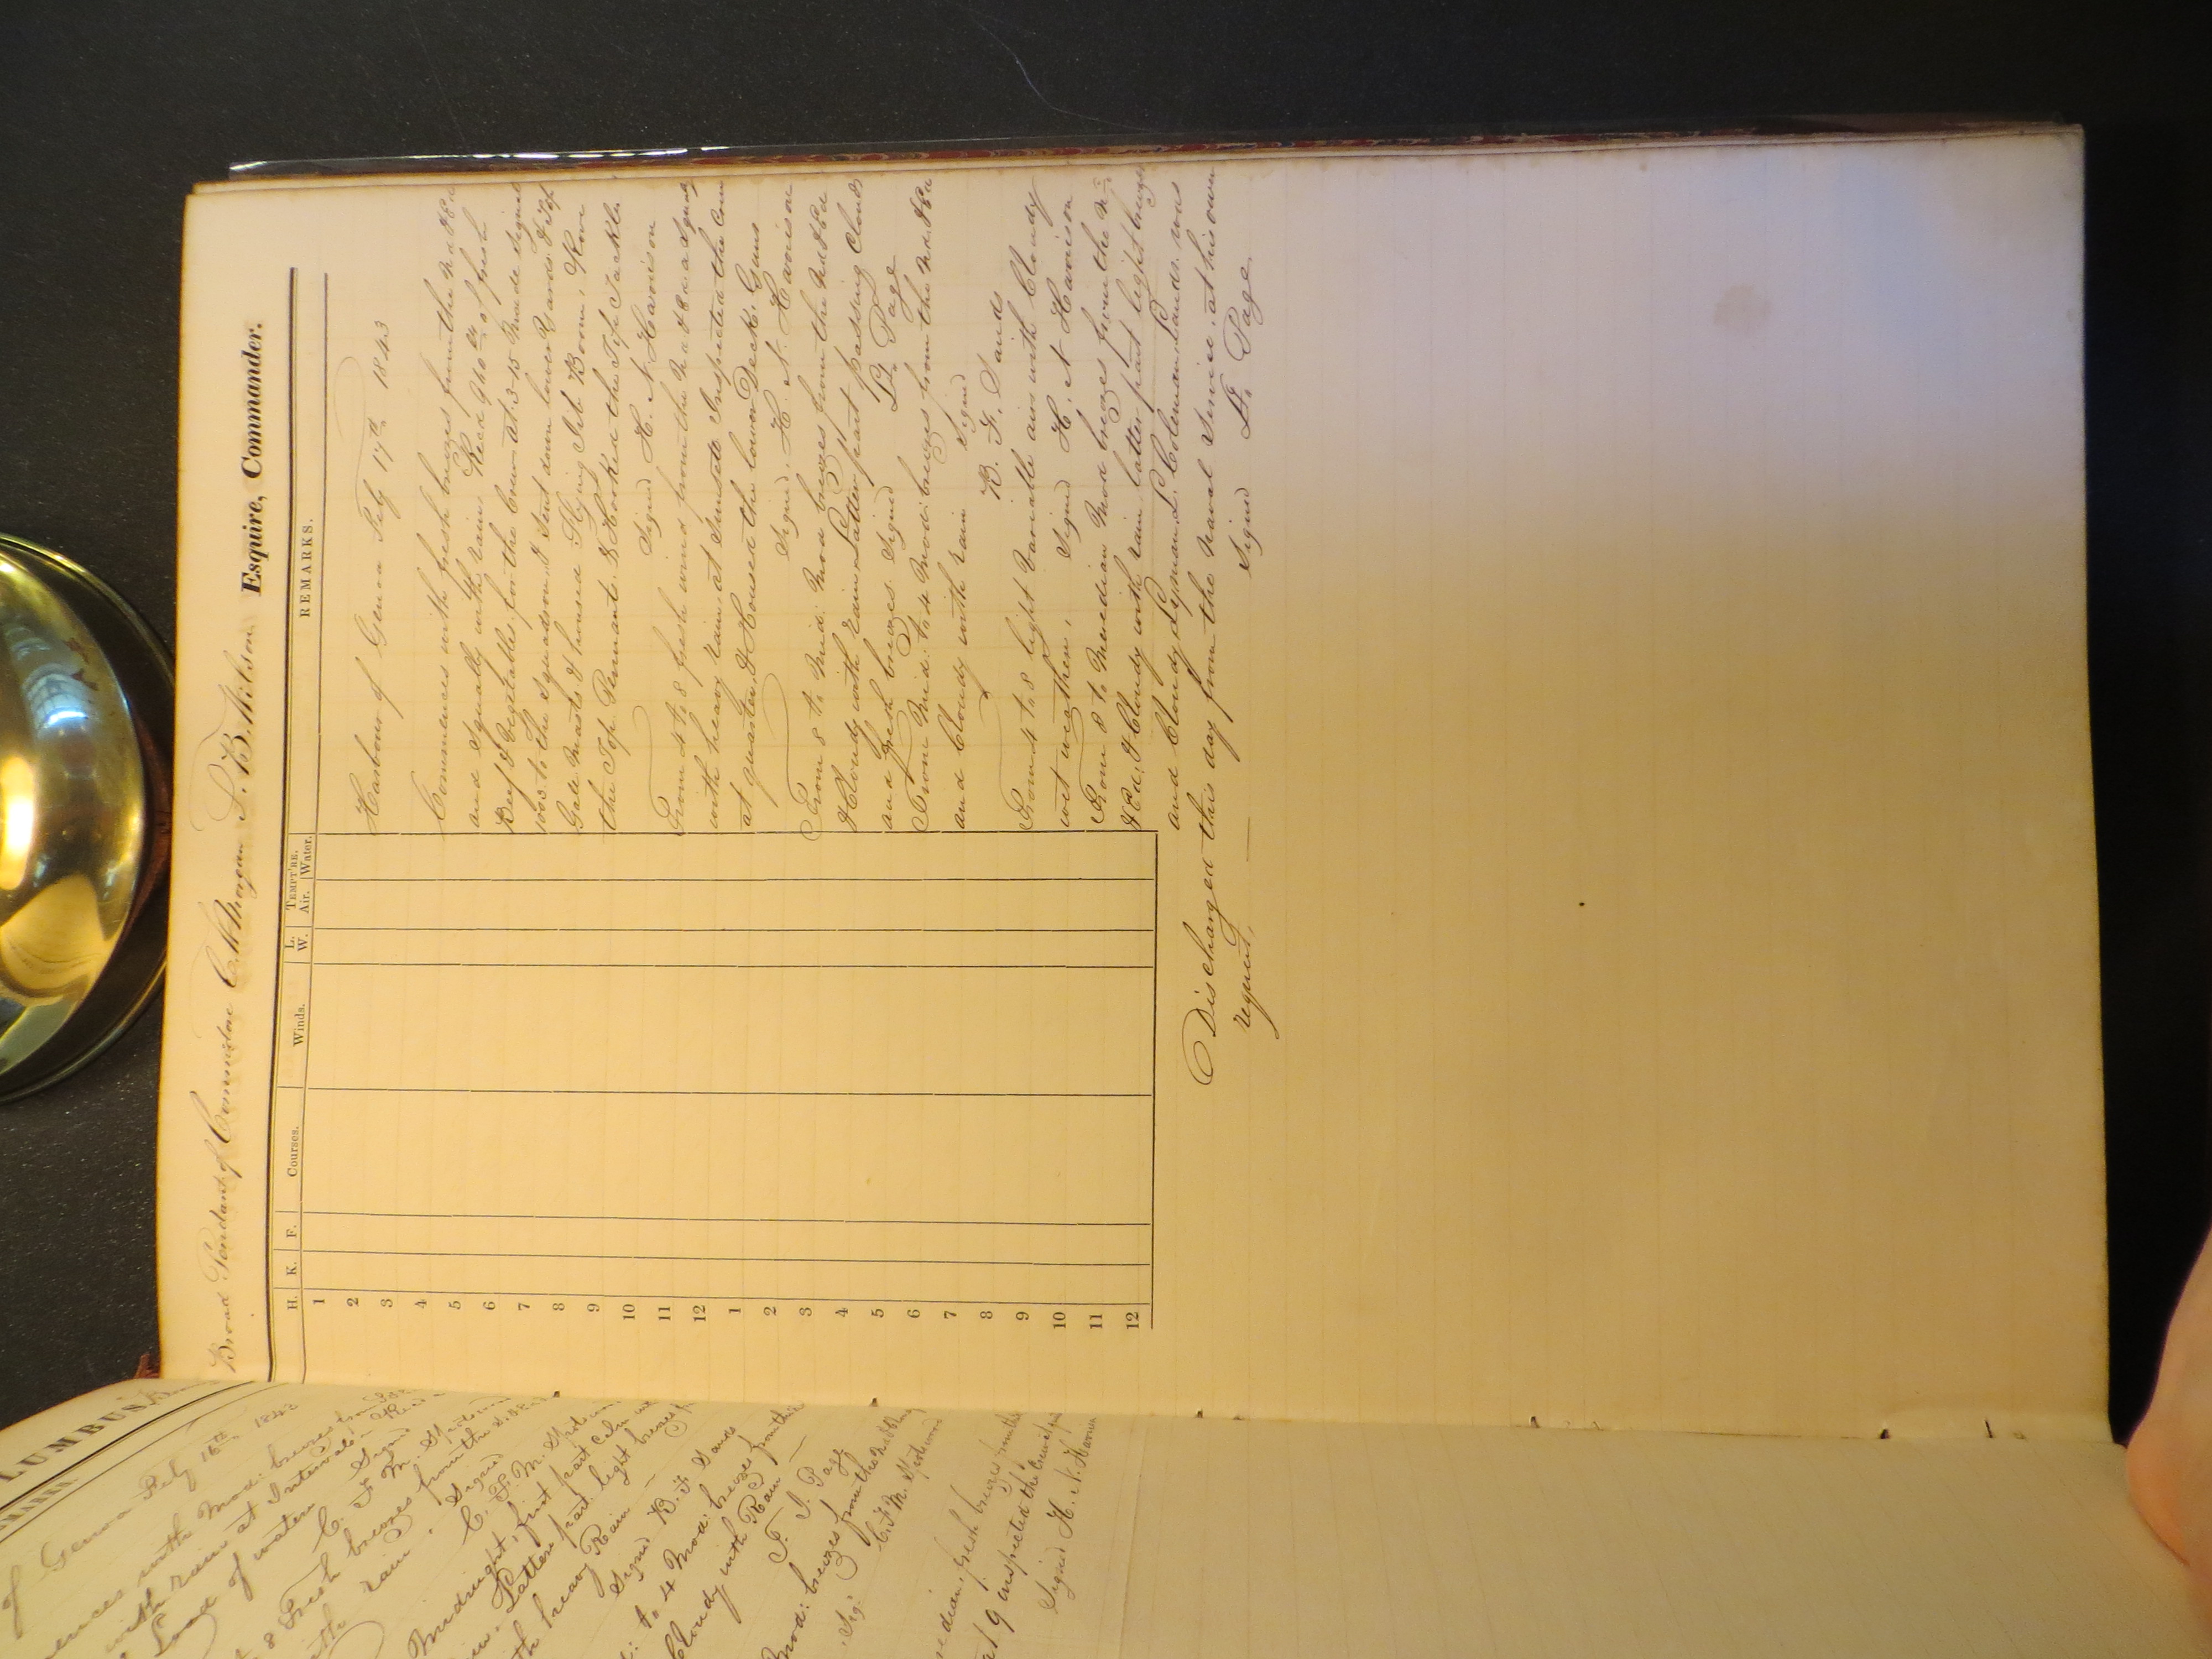 LUMBUS,
of Genoa Feby 16th 1843
with Mod: breezes from
with rain at Intervals
Load of water Signd
C. F. M. Spotswood
8 Fresh breezes from the
rain. Signd
C. F. M.
Midnight, first part Calm
Latter part light breezes
heavy Rain
Signd B. F. Sands
to 4 Mod: breezes from the
Cloudy with Rain
F. I. Page
Mod: breezes from the Nd & Ed
Sig: C. F. M. Spotswood
fresh breezes from the
at 9 inspected the Crew
Signd H. N. Harrison
Broad Pendant of Commodore C. W. Morgan S. B. Wilson Esquire, Commander.
H. K. F. Courses. Winds. L. W. TEMPT'RE. Air. Water. REMARKS.
1
2 Harbour of Genoa Feby 17th 1843
3
4 Commences with fresh breezes from the Nd & Ed
5 and Squally with rain. Recd 960 lbs of fresh
6 Beef & Vegetables for the Crew at 3-15 Made Signal
7 1003 to the Squadron & Sent down lower Yards & Top
8 Gall Masts & housed Flying Jib Boom, Rove
9 the Top Pennants & Hooked the Top Tackles
10 Signd H. N. Harrison
11 From 4 to 8 fresh wind from the Nd & Ed and Squally
12 with heavy rain at Sunset Inspected the Crew
1 at quarters & Housed the lower Deck Guns
2 Signd. H. N. Harrison
3 From 8 to Mid: Mod breezes from the Nd & Ed
4 & Cloudy with rain Latter part passing Clouds
5 and fresh breezes. Signd F. Page
6 From Mid: to 4 Mod: breezes from the Nd & Ed
7 and Cloudy with rain Signd
8 B. F. Sands
9 From 4 to 8 light Variable airs with Cloudy
10 wet weather, Signd H. N Harrison
11 From 8 to Meredian Mod breezes from the N
12 & Ed, & Cloudy with rain latter part light breezes
and Cloudy Lyman L. Coleman Lands. was
Discharged this day from the Naval Service, at his own
request, Signd F. Page